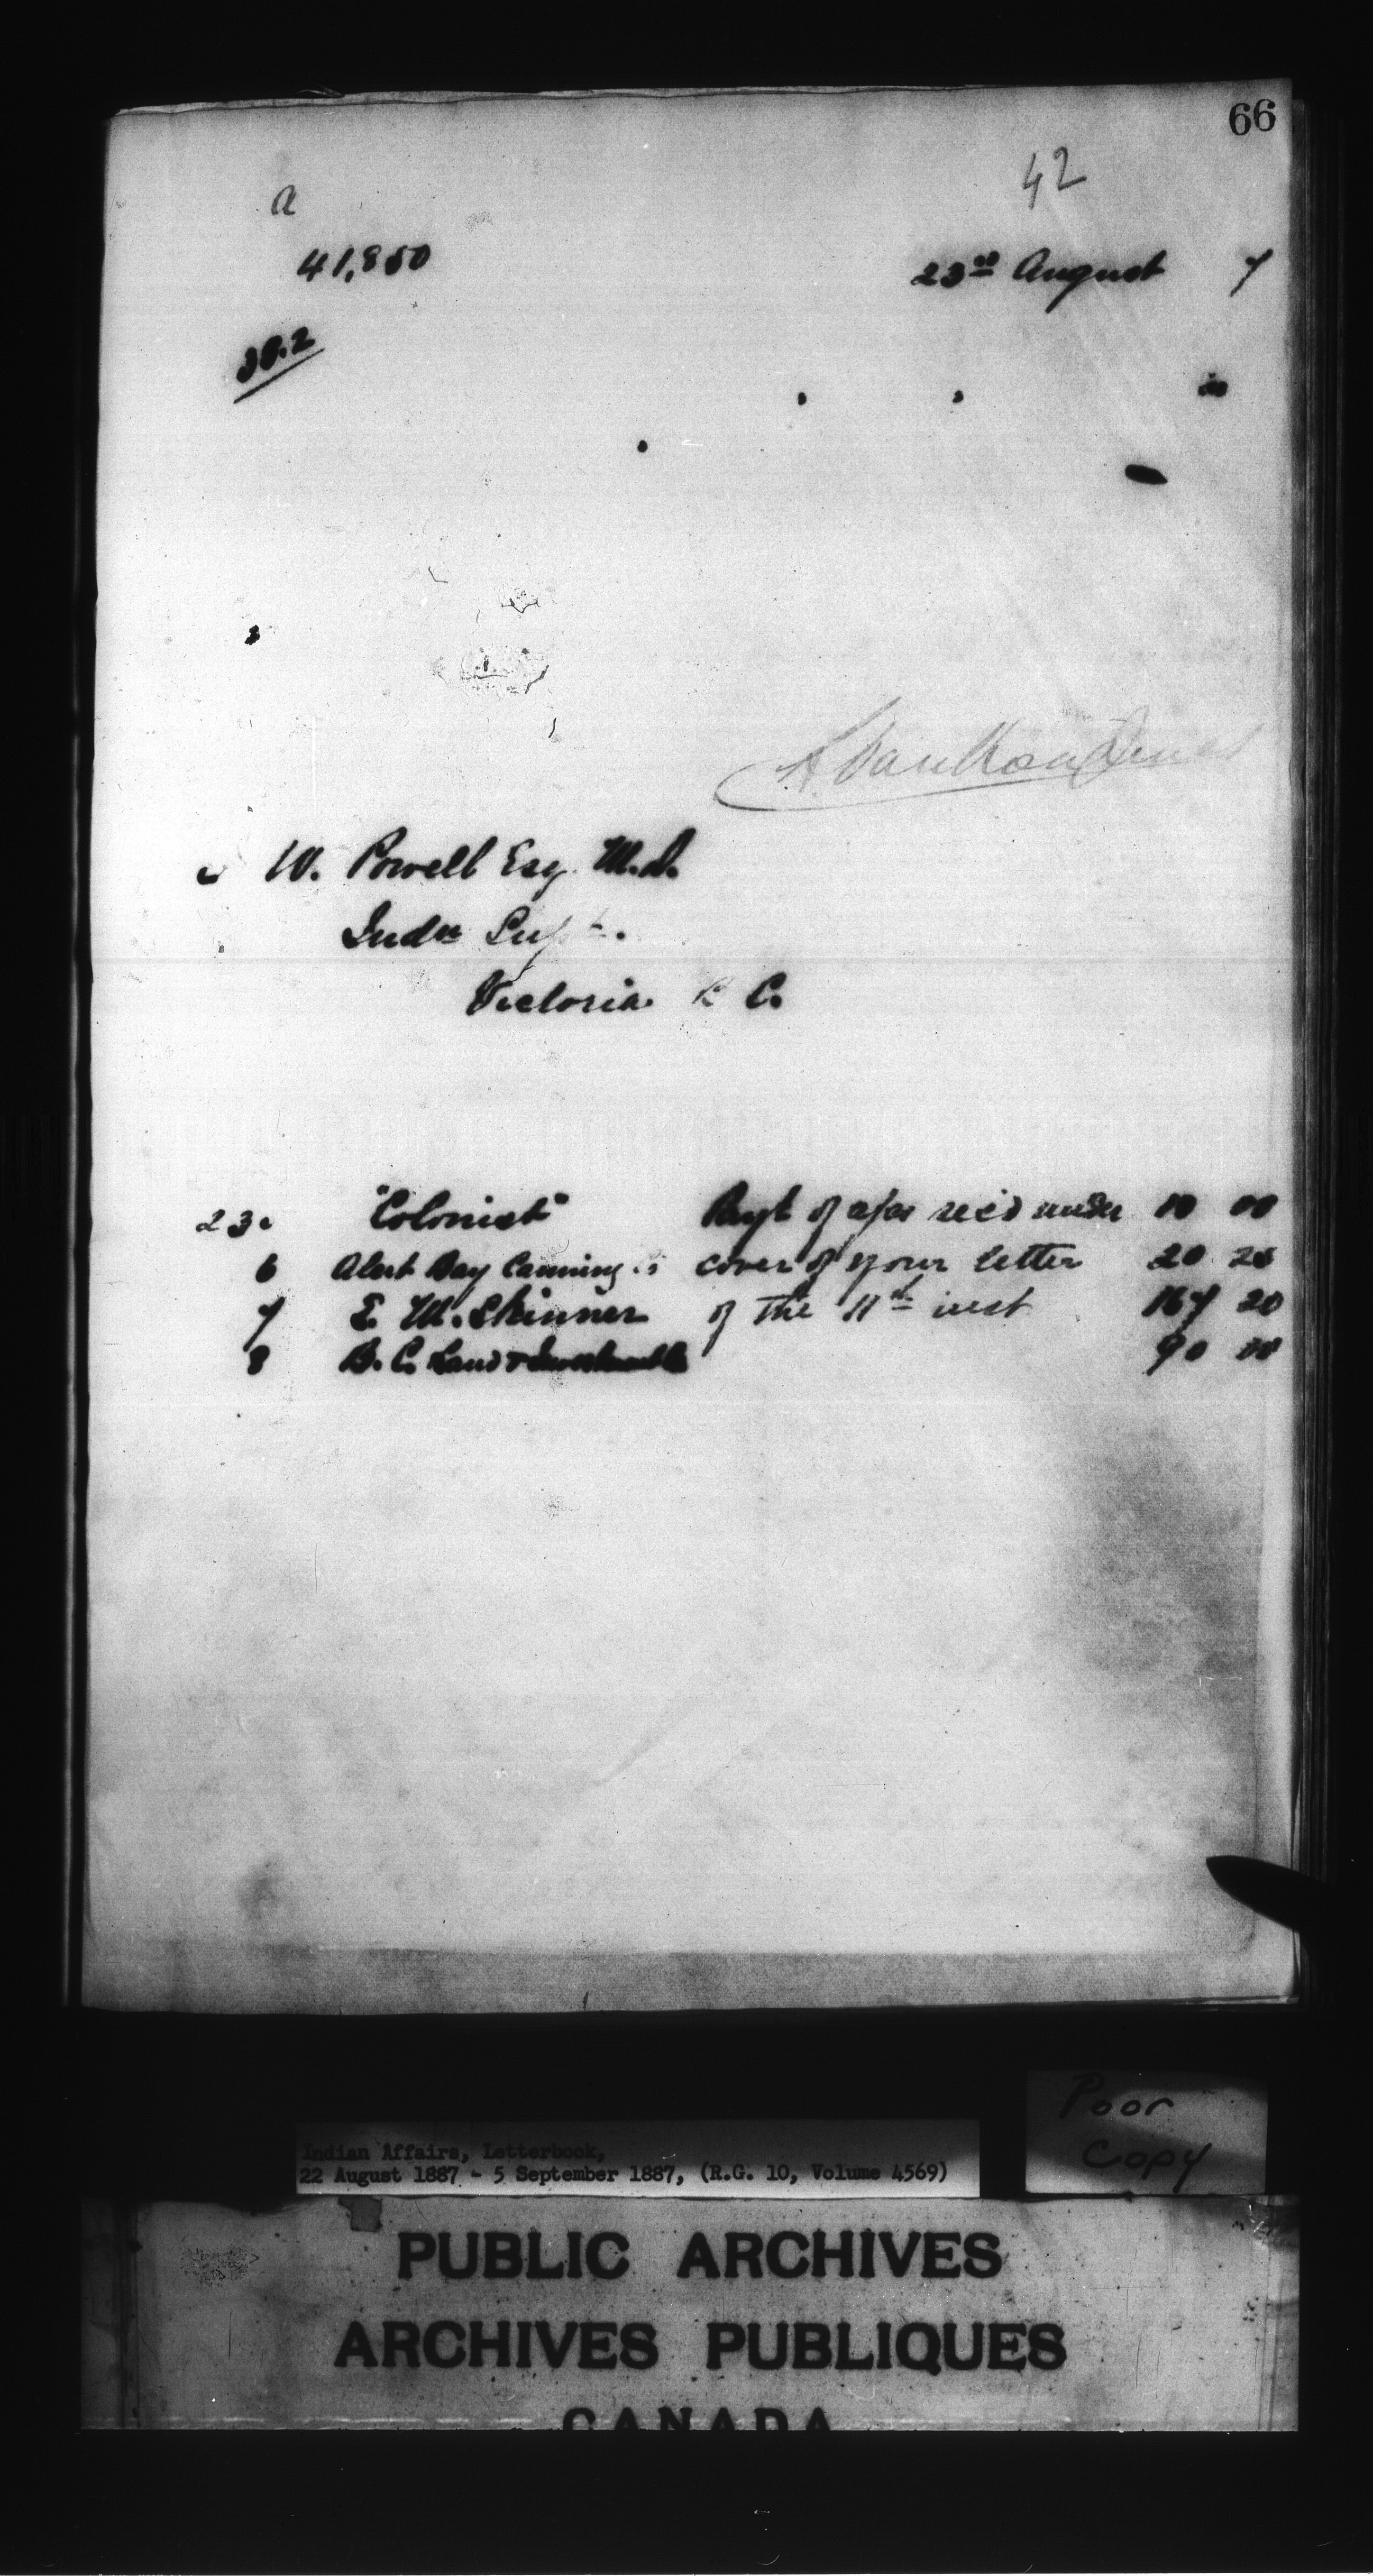 66
42
a
41,850
23rd August 7
38.2
L. VanKoughnet
W. Powell Esq. M.D.
Indn Supt.
Victoria B C.
23. "Colonist" Payt of a/cs rec'd under 10 00
6 Alert Bay Canning Co cover of your letter 20 25
7 E. M. Skinner of the 11th inst 167 20
8 B. C. Land & Investment 90 00
Poor
Copy
Indian Affairs, Letterbook,
22 August 1887 - 5 September 1887, (R.G. 10, Volume 4569)
PUBLIC ARCHIVES
ARCHIVES PUBLIQUES
CANADA